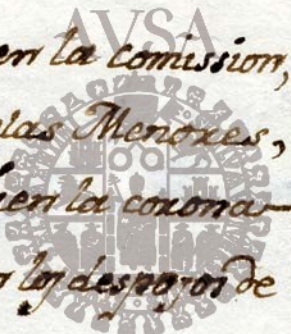 AVSA
en la comission,
cias Menores,
en la corona-
los despojos de